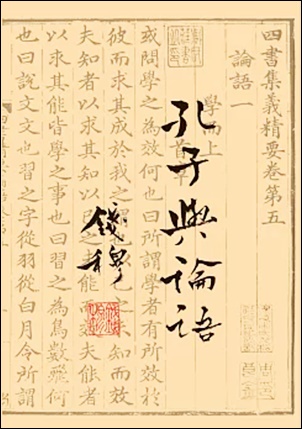 孔子與論語
錢穆
四書集義精要卷第五
論語一
學而上
或問學之為效何也曰所謂學者有所效於
彼而求其成於我之知而效
夫知者以求其知以夫能者
以求其能皆學之事也曰習之為鳥數飛何
也曰說文文也習之字從羽從白月令所謂